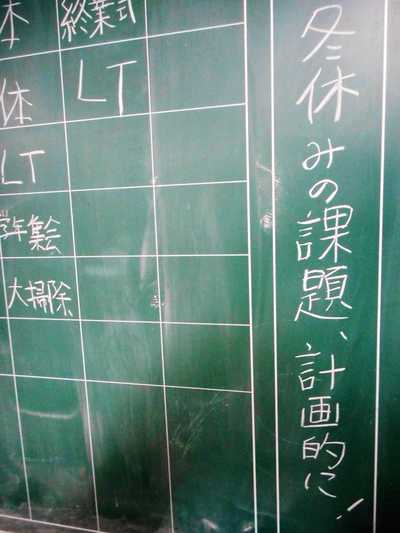 冬休みの課題、計画的に!
終業式
LT
本
体
LT
学年集会
大掃除